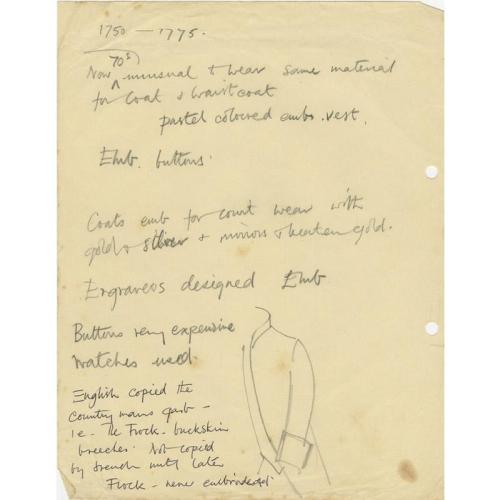 1750 — 1775.
70s)
Now unusual to wear same material
for Coat & Waistcoat
pastel coloured emb. vest.
Emb. buttons.
Coats emb for court wear with
gold & silver & mirrors & beaten gold.
Engravers designed Emb
Buttons very expensive
Watches used.
English copied the
Country mans garb –
ie – the Frock – buckskin
breeches. Not copied
by french until later
Frock – never embroidered